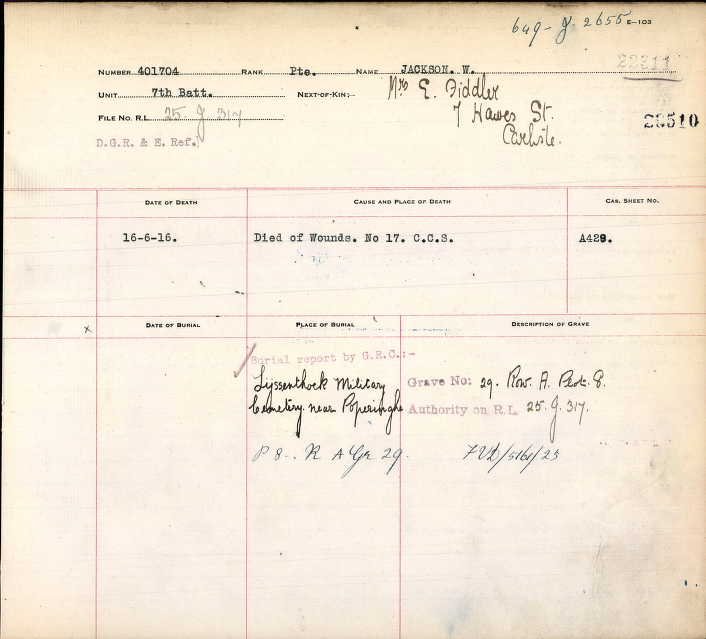 649-J-2655 E-103
NUMBER 401704 RANK Pte. NAME JACKSON. W. 22211
UNIT 7th Batt. NEXT-OF-KIN:- Mrs E. Fiddler
7 Hawes St.
Carlisle.
FILE NO. R.L. 25 J 317
D.G.R. & E. Ref.
DATE OF DEATH CAUSE AND PLACE OF DEATH CAS. SHEET NO.
16-6-16. Died of Wounds. No 17. C.C.S. A429.
x DATE OF BURIAL PLACE OF BURIAL DESCRIPTION OF GRAVE
Burial report by G.R.C.:-
Lijssenthock Military Grave No: 29. Row. A. Plot. 8.
Cemetery near Poperinghe Authority on R.L. 25.J.317.
P 8.. R A Gr 29.